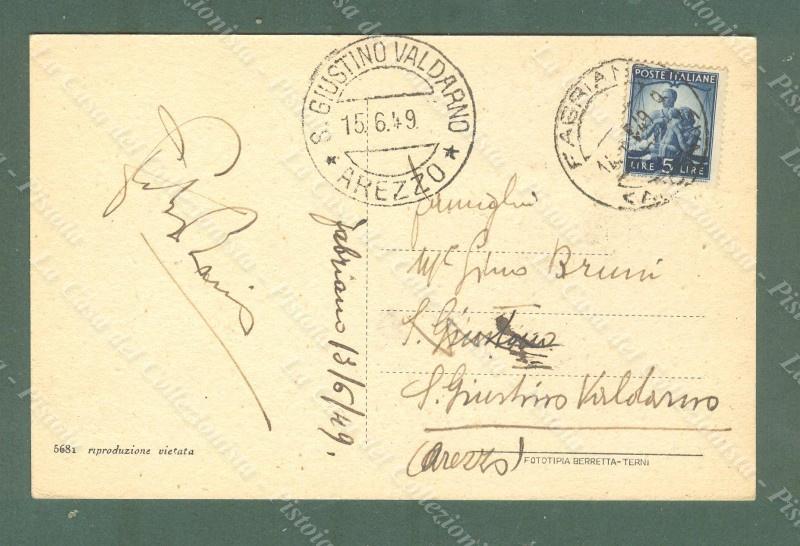 S. GIUSTINO VALDARNO
15.6.49.
* AREZZO *
FABRIANO
POSTE ITALIANE
LIRE 5 LIRE
fabriano 13/6/49.
famiglia
Mº Gino Bruni
S. Giustino
S. Giustino Valdarno
(Arezzo)
5681 riproduzione vietata
FOTOTIPIA BERRETTA-TERNI
La Casa del Collezionista - Pistoia